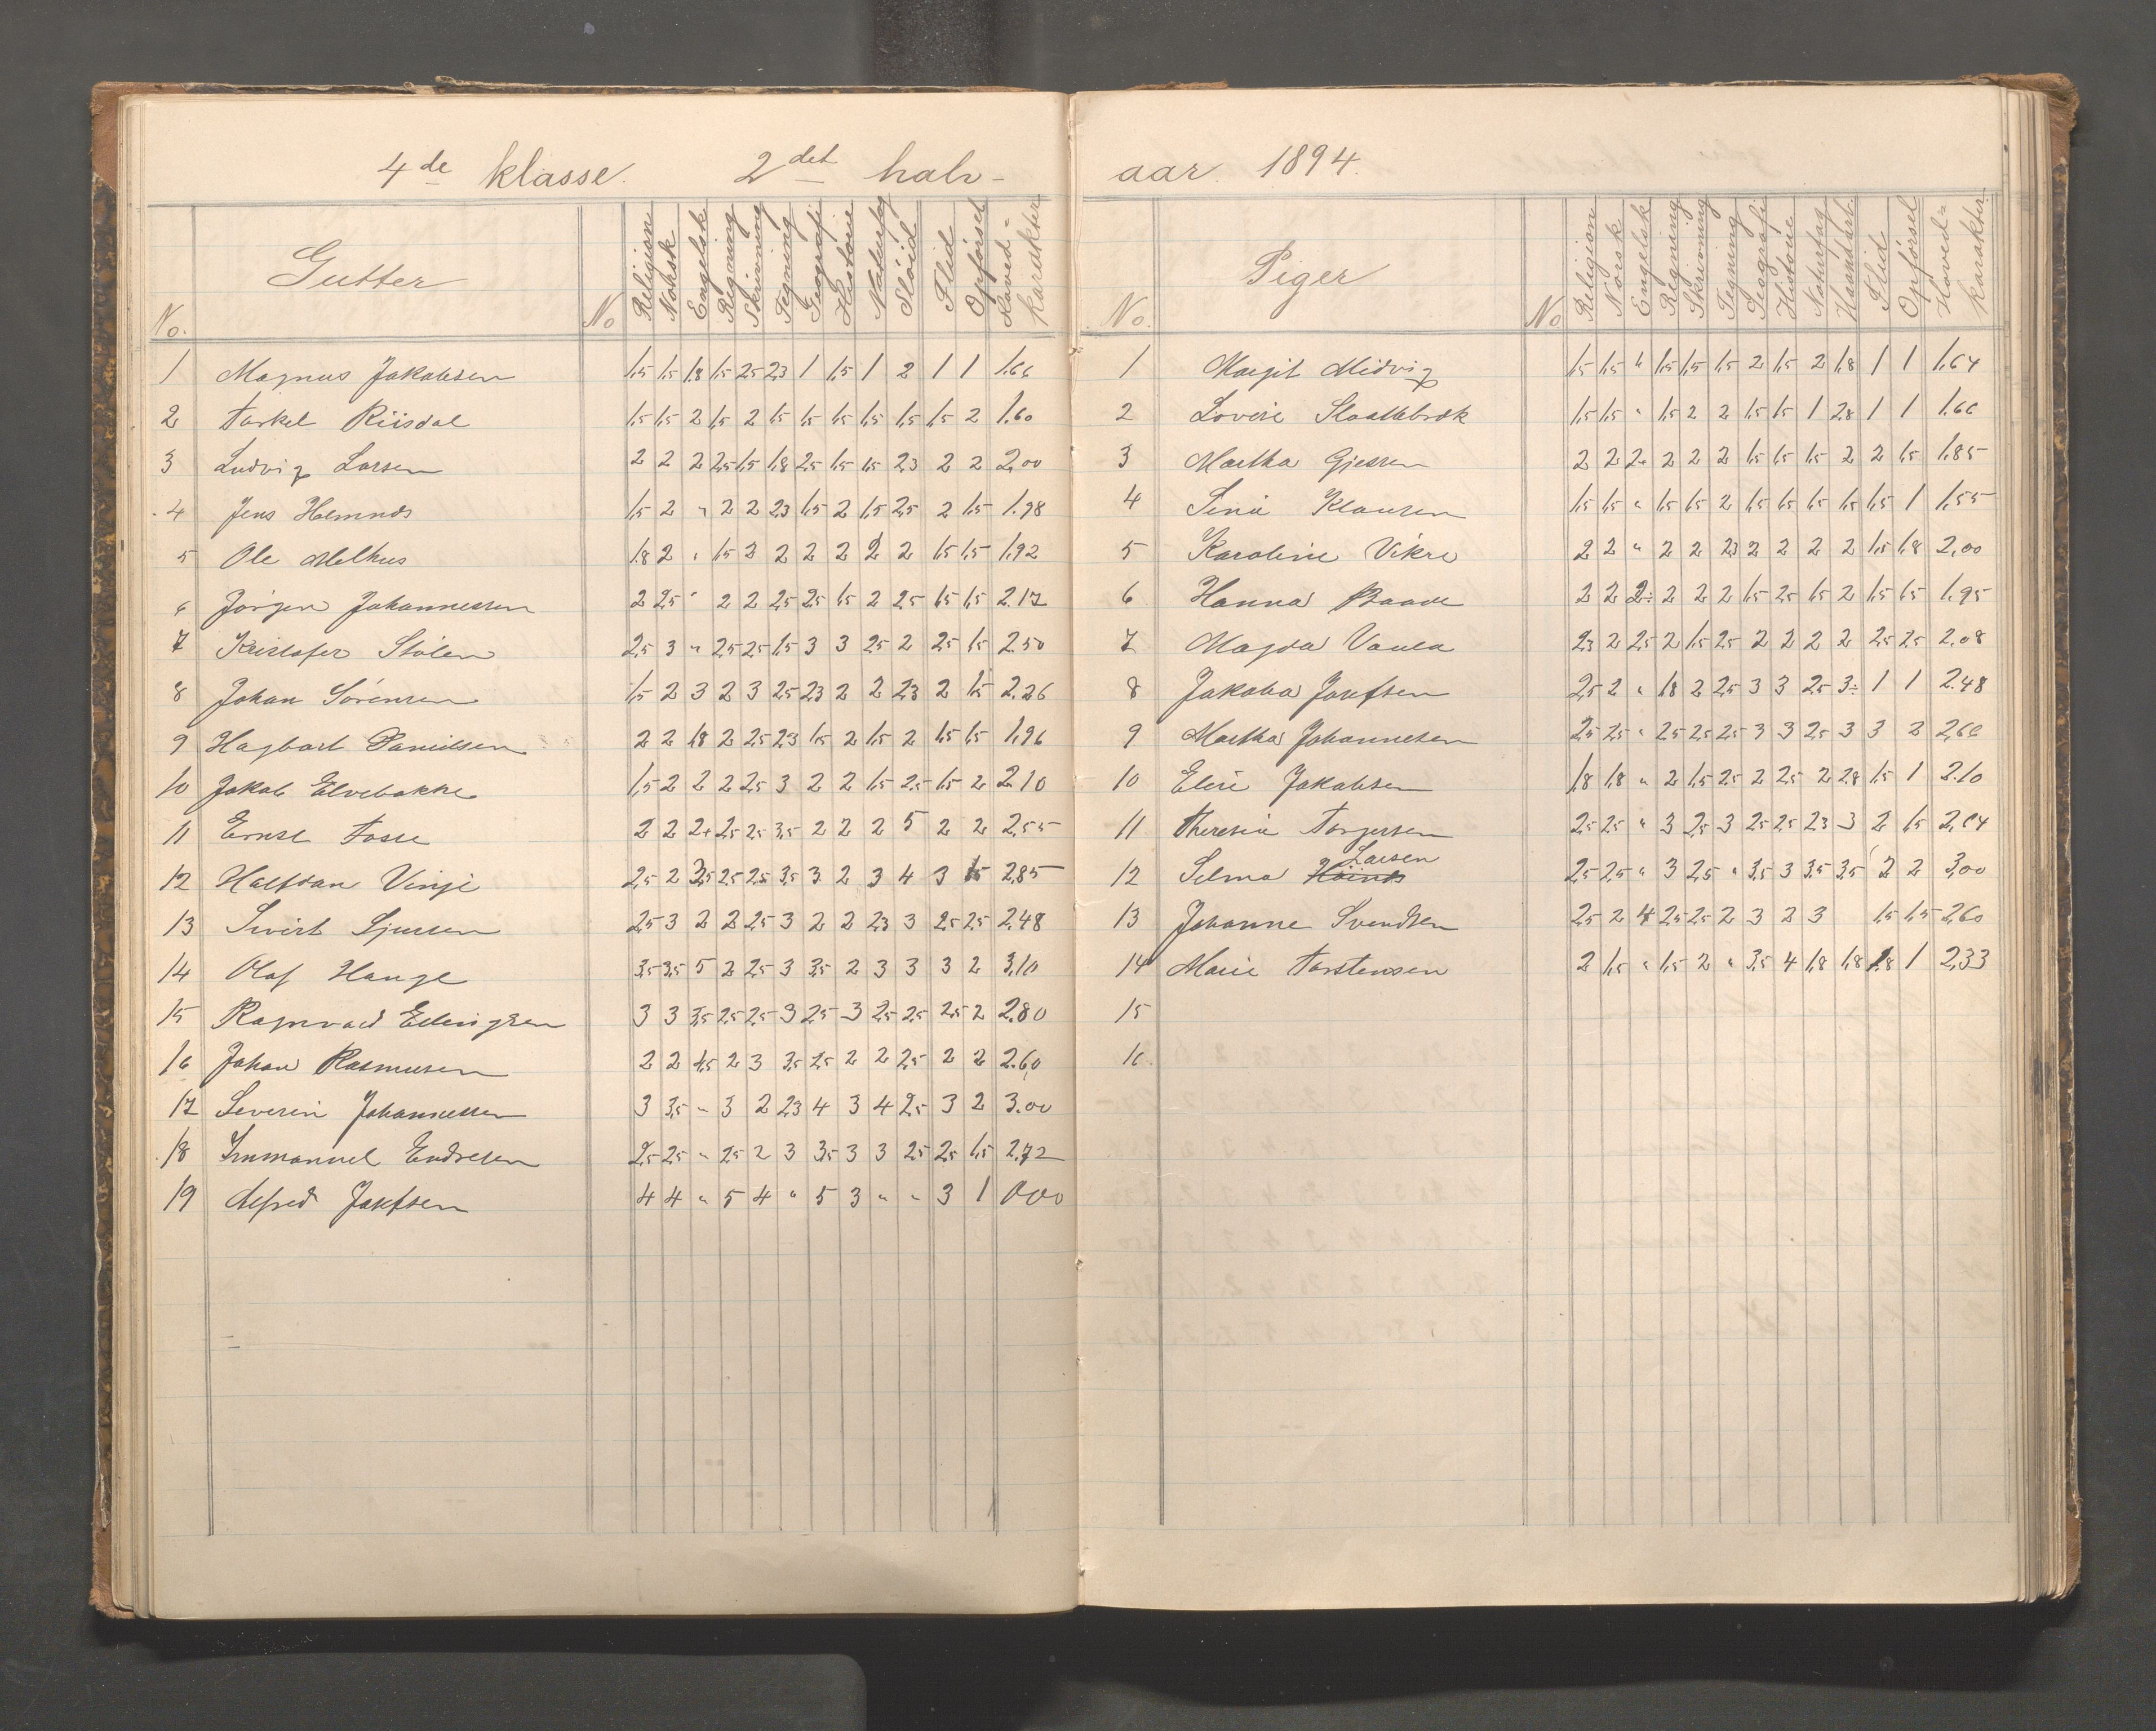 4de klasse. 2det halv-
Gutter
No. No Religion Norsk Engelsk Regning Skrivning Tegning Geografi Historie Naturfag Slöid Flid Opförsel Hoved-karakter
1 Magnus Jakobsen 1,5 1,5 1,8 1,5 2,5 2,3 1 1,5 1 2 1 1 1.66
2 Torkel Riisdal 1,5 1,5 2 1,5 2 1,5 1,5 1,5 1,5 1,5 1,5 2 1.60
3 Ludvig Larsen 2 2 2 2,5 1,5 1,8 2,5 1,5 1,5 2,3 2 2 2,00
4 Jens 1,5 2 " 2 2 2,3 1,5 2 1,5 2,5 2 1,5 1.98
5 Ole Melhus 1,8 2 " 1,5 2 2 2 2 2 2 1,5 1,5 1,92
6 Jörgen Johannessen 2 2,5 " 2 2 2,5 2,5 1,5 2 2,5 1,5 1,5 2.17
7 Kristofer Stölen 2,5 3 " 2,5 2,5 1,5 3 3 2,5 2 2,5 1,5 2.50
8 Johan Sörensen 1,5 2 3 2 3 2,5 2,3 2 2 2,3 2 1,5 2.26
9 Hagbart Danielsen 2 2 1,8 2 2,5 2,3 1,5 2 1,5 2 1,5 1,5 1,96
10 Jakob Elvebakke 1,5 2 2 2 2,5 3 2 2 1,5 2,5 1,5 2 2.10
11 Ernst Fosse 2 2 2+ 2,5 2,5 3,5 2 2 2 5 2 2 2,55
12 Halfdan Vinje 2,5 2 3,5 2,5 2,5 3,5 3 2 3 4 3 1,5 2,85
13 Sivert Sjursen 2,5 3 2 2 2,5 3 2 2 2,3 3 2,5 2,5 2,48
14 Olaf Hauge 3,5 3,5 5 2 2,5 3 3,5 2 3 3 3 2 3,10
15 Ragnvald Ellingsen 3 3 3,5 2,5 2,5 3 2,5 3 2,5 2,5 2,5 2 2.80
16 Johan Rasmusen 2 2 4,5 2 3 3,5 2,5 2 2 2,5 2 2 2.60
17 Severin Johannessen 3 3,5 " 3 2 2,3 4 3 4 2,5 3 2 3.00
18 Immanuel Endresen 2,5 2,5 " 2,5 2 3 3,5 3 3 2,5 2,5 1,5 2,72
19 Alfred Josefsen 4 4 " 5 4 " 5 3 " " 3 1 000
aar. 1894.
Piger
No. No Religion Norsk Engelsk Regning Skrivning Tegning Geografi Historie Naturfag Haandarb. Flid Opförsel Hoved-karakter
1 Margit Midvig 1,5 1,5 " 1,5 1,5 1,5 2 1,5 2 1,8 1 1 1,64
2 Lovise Slaattebräk 1,5 1,5 " 1,5 2 2 1,5 1,5 1 2,8 1 1 1.66
3 Martha Gjessen 2 2 2+ 2 2 2 1,5 1,5 1,5 2 2 1,5 1.85
4 Sina Klausen 1,5 1,5 " 1,5 1,5 2 1,5 1,5 1,5 1,5 1,5 1 1,55
5 Karoline Vikre 2 2 " 2 2 2,3 2 2 2 2 1,5 1,8 2,00
6 Hanna Baade 2 2 2÷ 2 2 2 1,5 2,5 1,5 2 1,5 1,5 1.95
7 Magda Vaula 2,3 2 2,5 2 1,5 2,5 2 2 2 2 2,5 2,5 2,08
8 Jakoba Josefsen 2,5 2 " 1,8 2 2,5 3 3 2,5 3÷ 1 1 2.48
9 Martha Johannesen 2,5 2,5 " 2,5 2,5 2,5 3 3 2,5 3 3 2 2,66
10 Elise Jakobsen 1,8 1,8 " 2 1,5 2,5 2 2,5 2 2,8 1,5 1 2.10
11 Theresia Torgersen 2,5 2,5 " 3 2,5 3 2,5 2,5 2,3 3 2 1,5 2,64
Larsen
12 Selma 2,5 2,5 " 3 2,5 " 3,5 3 3,5 3,5 2 2 3,00
13 Johanne Svendsen 2,5 2 4 2,5 2,5 2 3 2 3 1,5 1,5 2,60
14 Marie Torstensen 2 1,5 " 1,5 2 " 3,5 4 1,8 1,8 1,8 1 2,33
15
16